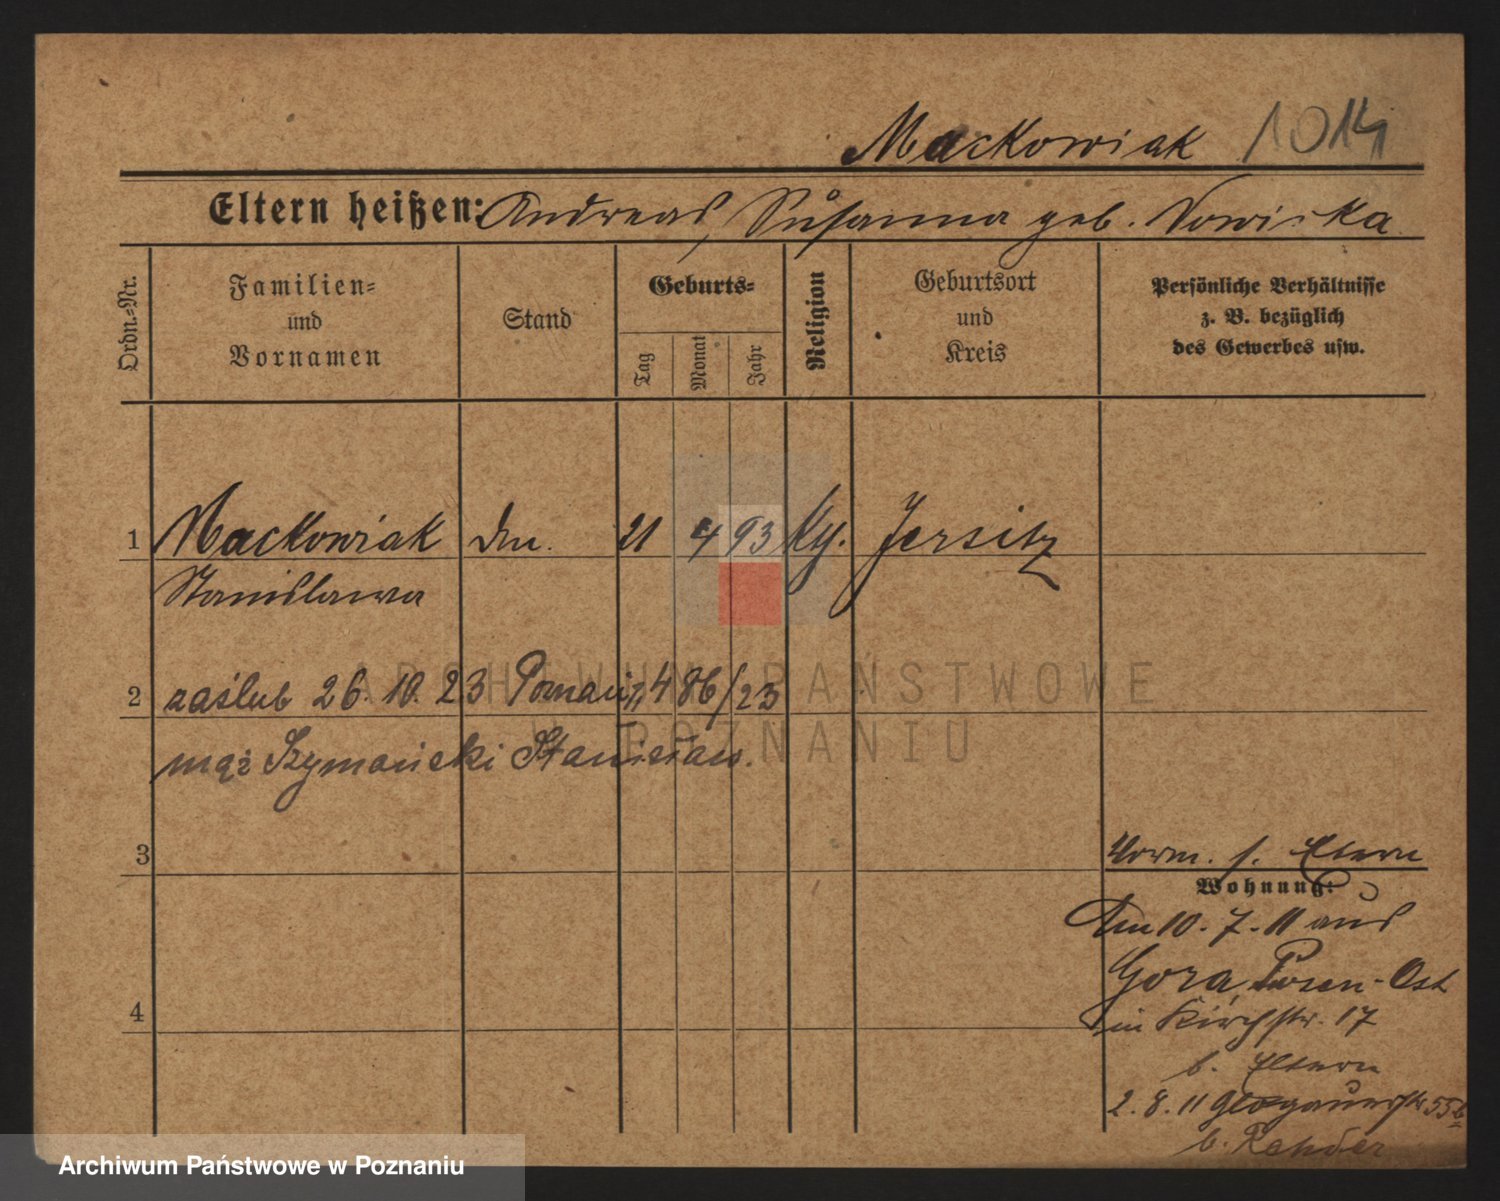 Mackowiak 1014
Eltern heißen: Andreas, Susanna geb. Nowicka
Ordn.-Nr.
Familien-
und
Vornamen
Stand
Geburts-
Tag
Monat
Jahr
Religion
Geburtsort
und
Kreis
Persönliche Verhältnisse
z. B. bezüglich
des Gewerbes usw.
1 Mackowiak 21 4 93 Jersitz
Stanislawa
2 zaślub 26. 10. 23 Poznań 486/23
mąż Szymański Stanisław.
3
Vorm. s. Eltern
Wohnung:
Am 10. 7. 11 aus
Gora, Posen-Ost
4
in Kirchstr. 17
b. Eltern
2. 8. 11 Glogauerstr 55b
b. Rehder
ARCHIWUM PAŃSTWOWE
W POZNANIU
Archiwum Państwowe w Poznaniu